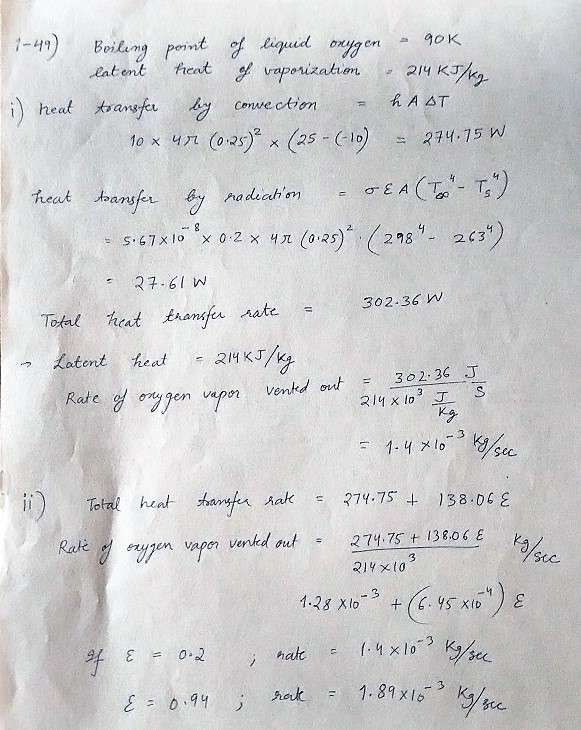 1-49) Boiling point of liquid oxygen = 90K
latent heat of vaporization = 214 KJ/kg
i) heat transfer by convection = h A ΔT
10 x 4π (0.25)² x (25 - (-10) = 274.75 W
heat transfer by radiation = σ ε A (T∞⁴ - Ts⁴)
= 5.67 x 10⁻⁸ x 0.2 x 4π (0.25)² . (298⁴ - 263⁴)
= 27.61 W
Total heat transfer rate = 302.36 W
→ Latent heat = 214 KJ/Kg
Rate of oxygen vapor vented out = 302.36 J/S / 214 x 10³ J/Kg
= 1.4 x 10⁻³ Kg/sec
ii) Total heat transfer rate = 274.75 + 138.06 ε
Rate of oxygen vapor vented out = 274.75 + 138.06 ε / 214 x 10³ Kg/sec
1.28 x 10⁻³ + (6.45 x 10⁻⁴) ε
If ε = 0.2 ; rate = 1.4 x 10⁻³ Kg/sec
ε = 0.94 ; rate = 1.89 x 10⁻³ Kg/sec